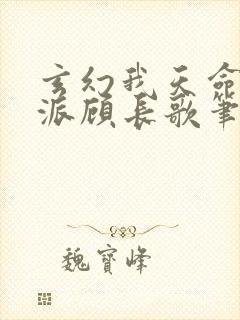 玄幻我天命
派顾长歌笔
魏寶峰